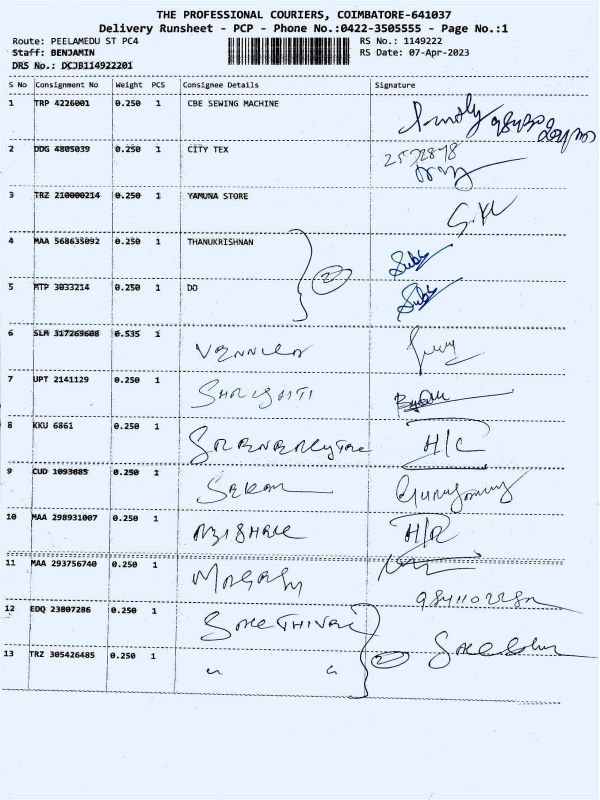 THE PROFESSIONAL COURIERS, COIMBATORE-641037
Delivery Runsheet - PCP - Phone No.:0422-3505555 - Page No.:1
Route: PEELAMEDU ST PC4
RS No.: 1149222
Staff: BENJAMIN
RS Date: 07-Apr-2023
DRS No.: DCJB114922201
S No Consignment No Weight PCS Consignee Details Signature
1 TRP 4226001 0.250 1 CBE SEWING MACHINE
2 DDG 4805039 0.250 1 CITY TEX
2572878
3 TRZ 210000214 0.250 1 YAMUNA STORE
4 MAA 568635092 0.250 1 THANUKRISHNAN
2
5 MTP 3033214 0.250 1 DO
6 SLM 317269608 0.535 1
7 UPT 2141129 0.250 1
8 KKU 6861 0.250 1 H/C
9 CUD 1093685 0.250 1
10 MAA 298931007 0.250 1 H/R
11 MAA 293756740 0.250 1
12 EDQ 23807286 0.250 1
13 TRZ 305426485 0.250 1 " " 2